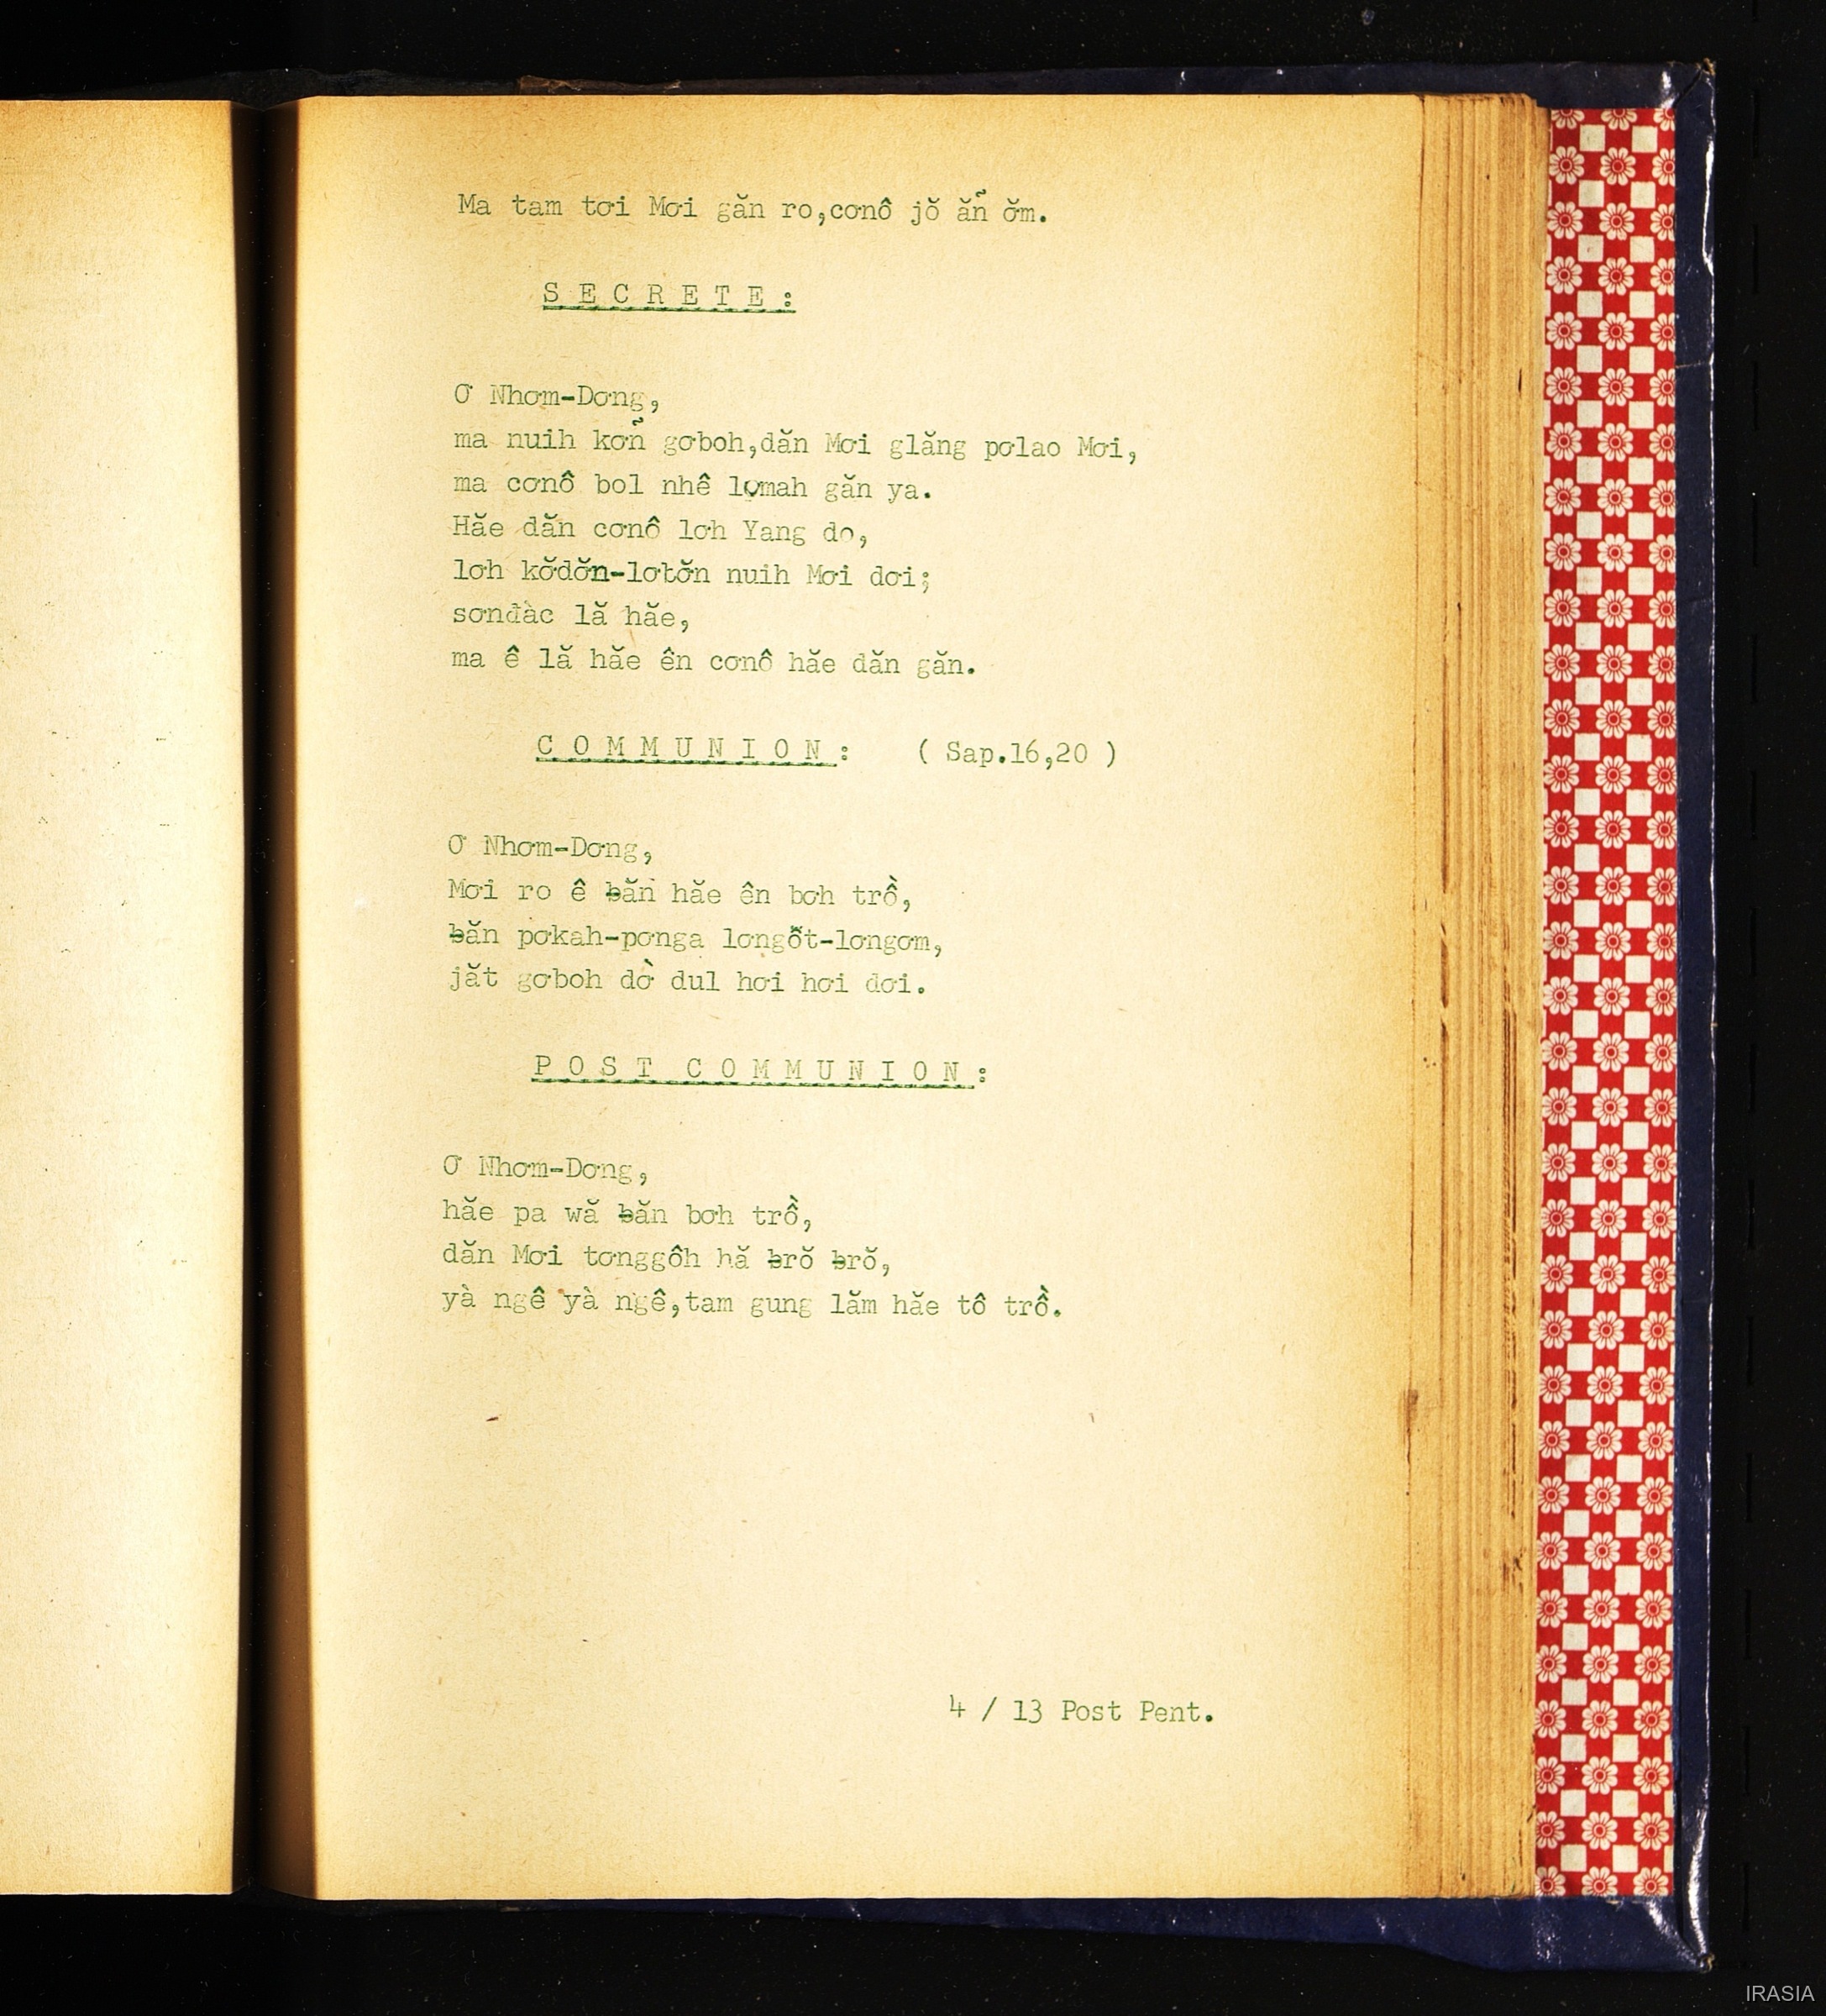 Ma tam tơi Mơi găn ro,cơnô jŏ ăñ ơ̆m.
S E C R E T E :
Ơ Nhơm-Dơng,
ma nuih kơñ gơboh,dăn Mơi glăng pơlao Mơi,
ma cơnô bol nhê lơmah găn ya.
Hăe dăn cơnô lơh Yang do,
lơh kơ̆dơ̆n-lơtơ̆n nuih Mơi dơi;
sơnđàc lă hăe,
ma ê lă hăe ên cơnô hăe dăn găn.
C O M M U N I O N : ( Sap.16,20 )
Ơ Nhơm-Dơng,
Mơi ro ê ƀăn hăe ên bơh trồ,
ƀăn pơkah-pơnga lơngôt-lơngơm,
jăt gơboh dờ dul hơi hơi dơi.
P O S T C O M M U N I O N :
Ơ Nhơm-Dơng,
hăe pa wă ƀăn bơh trồ,
dăn Mơi tơnggôh hă ƀrŏ ƀrŏ,
yà ngê yà ngê,tam gung lăm hăe tô trồ.
4 / 13 Post Pent.
IRASIA